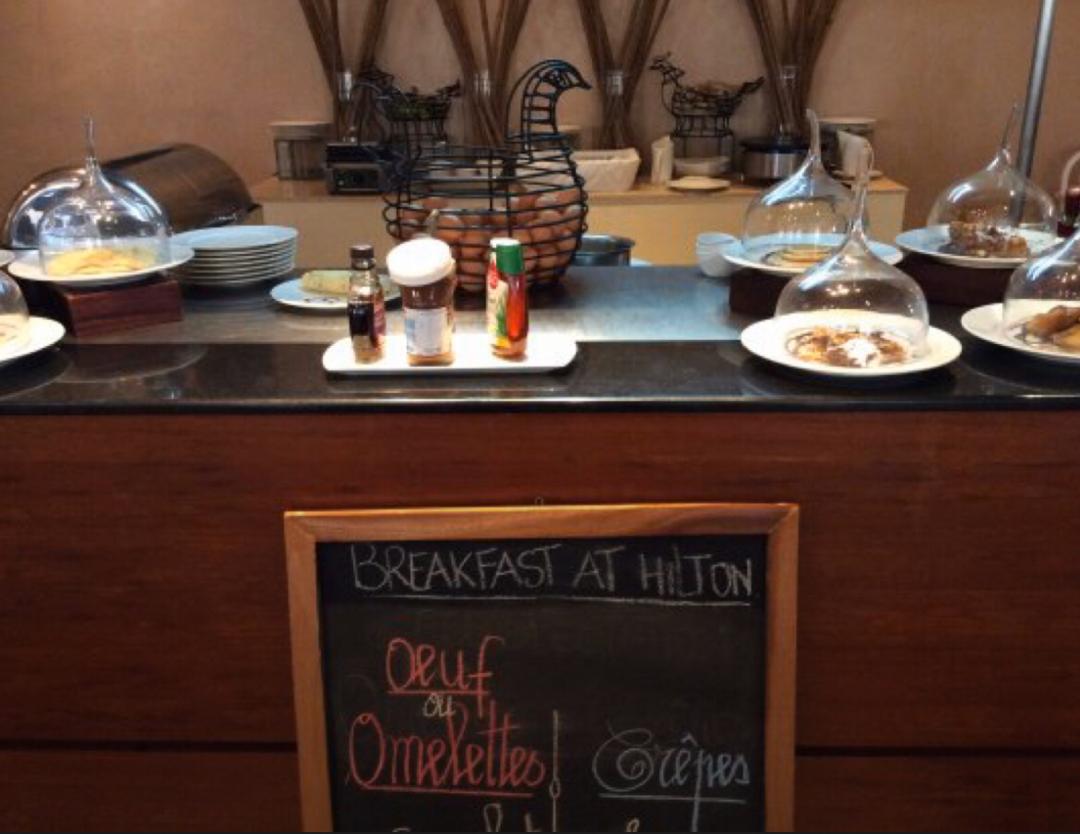 BREAKFAST AT HILTON
Oeuf
ou
Omelettes
Crêpes